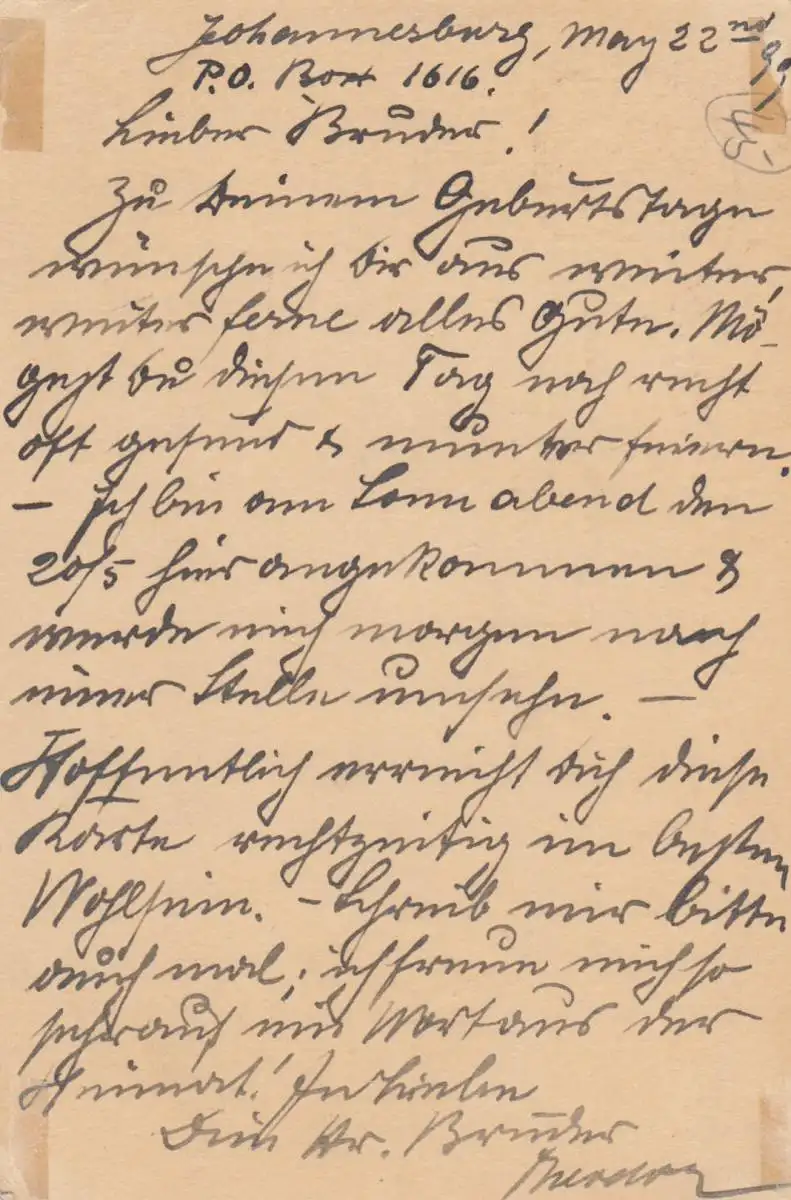 Johannesburg, May 22nd 99
P.O. Box 1616.
45
Lieber Bruder!
Zu Deinem Geburtstage
wünsche ich Dir aus weiter,
weiter ferne alles Gute. Mö-
gest Du diesen Tag noch recht
oft gesund & munter feiern.
– Ich bin am Sonnabend den
20/5 hier angekommen &
werde mich morgen nach
einer Stelle umsehn. –
Hoffentlich erreicht Dich diese
Karte rechtzeitig im besten
Wohlsein. – Schreib mir bitte
auch mal; ich freue mich so
sehr auf ein Wort aus der
Heimat! In Liebe
Dein Bruder